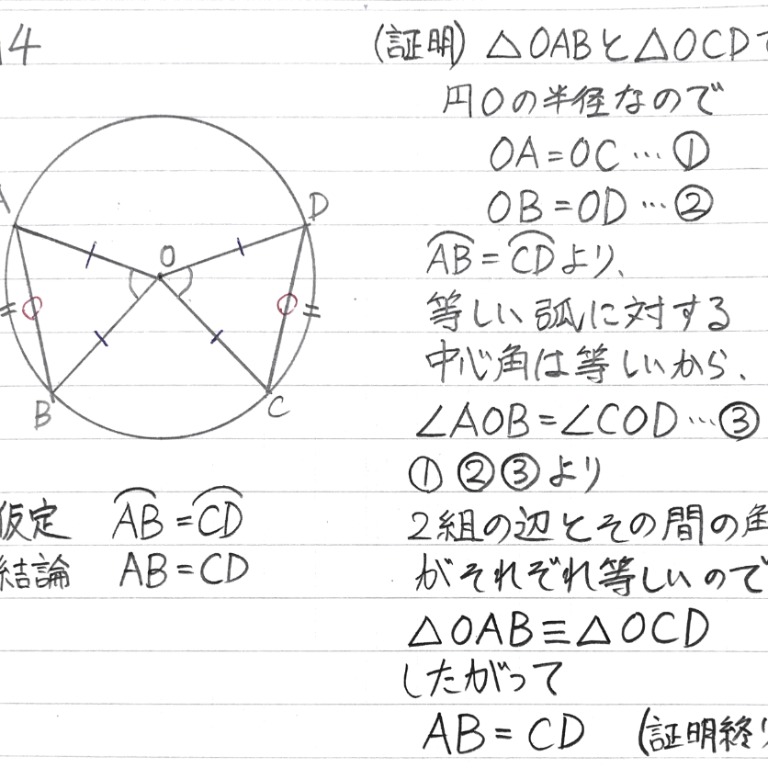 14
A
D
O
B
C
仮定 AB = CD
結論 AB = CD
(証明) △OABと△OCDで
円Oの半径なので
OA = OC … ①
OB = OD … ②
AB = CDより、
等しい弧に対する
中心角は等しいから、
∠AOB = ∠COD … ③
① ② ③ より
2組の辺とその間の角
がそれぞれ等しいので
△OAB ≡ △OCD
したがって
AB = CD (証明終り